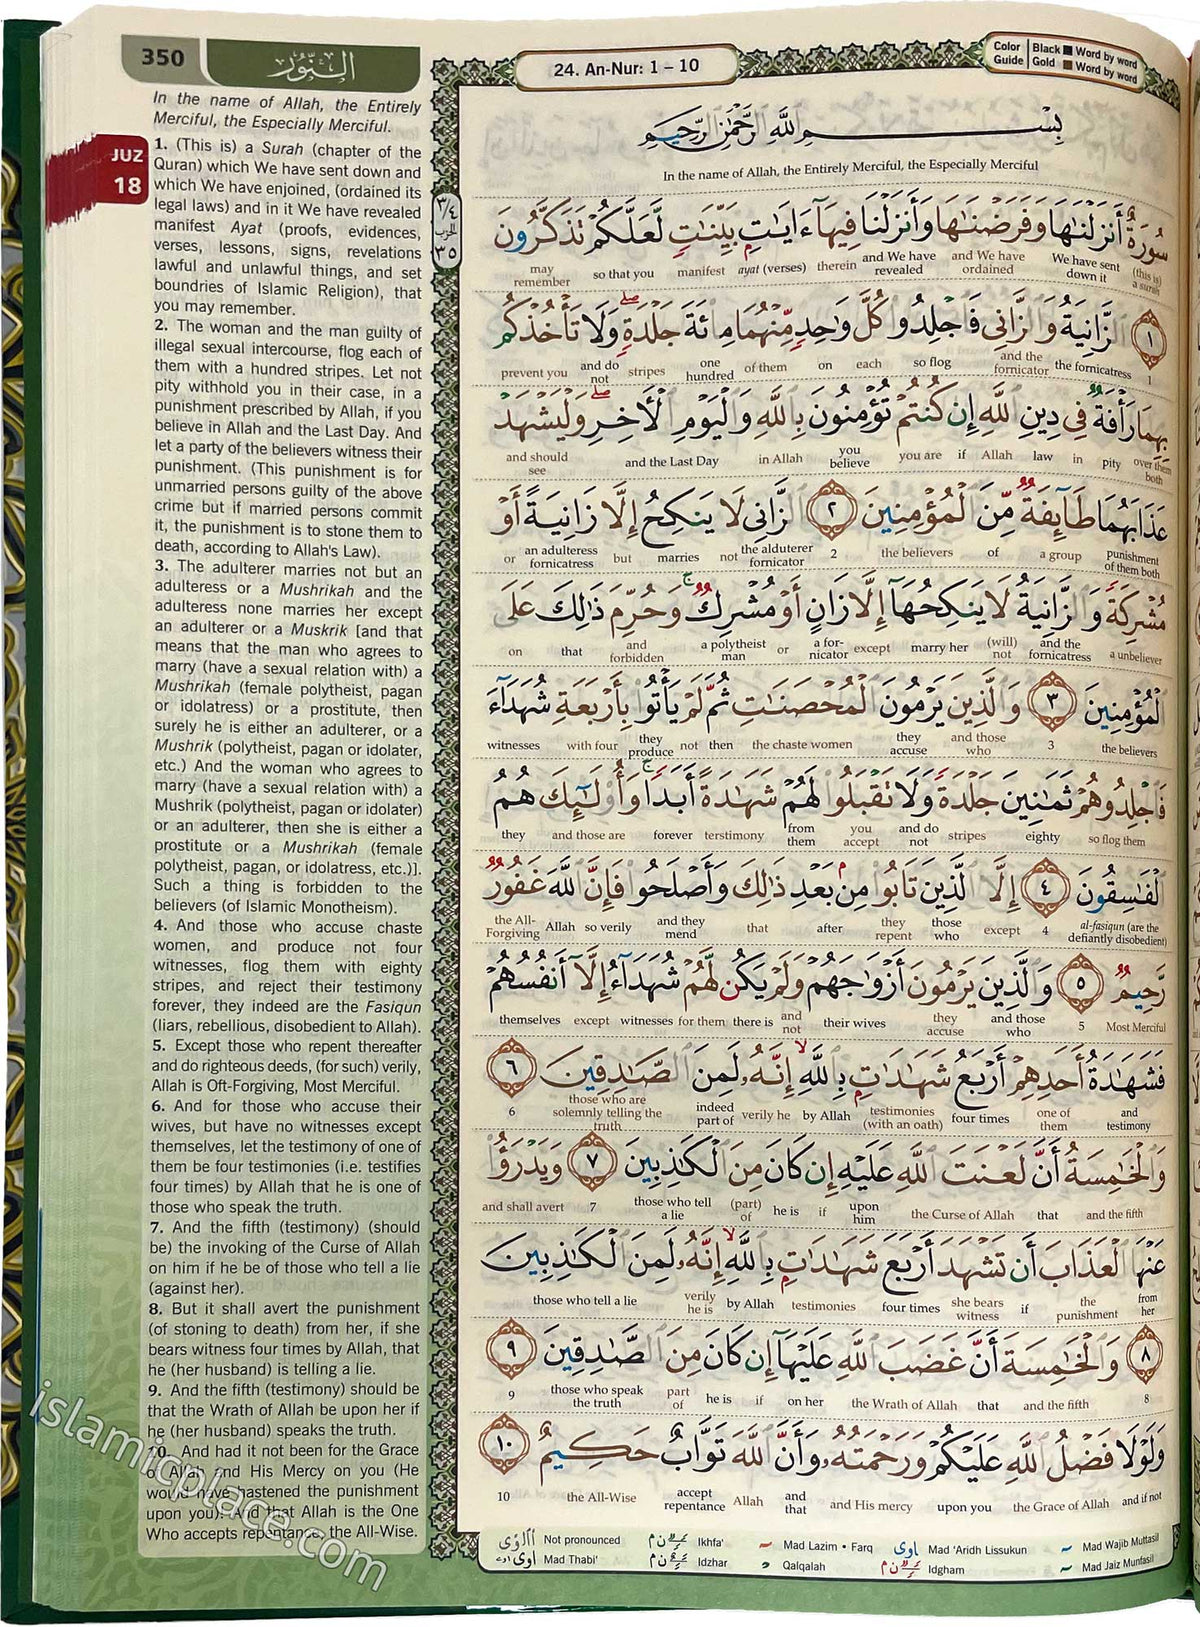 350
النُّور
In the name of Allah, the Entirely
Merciful, the Especially Merciful.
JUZ
18
1. (This is) a Surah (chapter of the
Quran) which We have sent down and
which We have enjoined, (ordained its
legal laws) and in it We have revealed
manifest Ayat (proofs, evidences,
verses, lessons, signs, revelations
lawful and unlawful things, and set
boundries of Islamic Religion), that
you may remember.
2. The woman and the man guilty of
illegal sexual intercourse, flog each of
them with a hundred stripes. Let not
pity withhold you in their case, in a
punishment prescribed by Allah, if you
believe in Allah and the Last Day. And
let a party of the believers witness their
punishment. (This punishment is for
unmarried persons guilty of the above
crime but if married persons commit
it, the punishment is to stone them to
death, according to Allah's Law).
3. The adulterer marries not but an
adulteress or a Mushrikah and the
adulteress none marries her except
an adulterer or a Muskrik [and that
means that the man who agrees to
marry (have a sexual relation with) a
Mushrikah (female polytheist, pagan
or idolatress) or a prostitute, then
surely he is either an adulterer, or a
Mushrik (polytheist, pagan or idolater,
etc.) And the woman who agrees to
marry (have a sexual relation with) a
Mushrik (polytheist, pagan or idolater)
or an adulterer, then she is either a
prostitute or a Mushrikah (female
polytheist, pagan, or idolatress, etc.)].
Such a thing is forbidden to the
believers (of Islamic Monotheism).
4. And those who accuse chaste
women, and produce not four
witnesses, flog them with eighty
stripes, and reject their testimony
forever, they indeed are the Fasiqun
(liars, rebellious, disobedient to Allah).
5. Except those who repent thereafter
and do righteous deeds, (for such) verily,
Allah is Oft-Forgiving, Most Merciful.
6. And for those who accuse their
wives, but have no witnesses except
themselves, let the testimony of one of
them be four testimonies (i.e. testifies
four times) by Allah that he is one of
those who speak the truth.
7. And the fifth (testimony) (should
be) the invoking of the Curse of Allah
on him if he be of those who tell a lie
(against her).
8. But it shall avert the punishment
(of stoning to death) from her, if she
bears witness four times by Allah, that
he (her husband) is telling a lie.
9. And the fifth (testimony) should be
that the Wrath of Allah be upon her if
he (her husband) speaks the truth.
10. And had it not been for the Grace
of Allah and His Mercy on you (He
would have hastened the punishment
upon you)! And that Allah is the One
Who accepts repentance, the All-Wise.
24. An-Nur: 1 – 10
Color Guide
Black Word by word
Gold Word by word
٣/٤
الحزب
٣٥
بِسْمِ اللَّهِ الرَّحْمَٰنِ الرَّحِيمِ
In the name of Allah, the Entirely Merciful, the Especially Merciful
سُورَةٌ أَنزَلْنَٰهَا وَفَرَضْنَٰهَا وَأَنزَلْنَا فِيهَآ ءَايَٰتٍۭ بَيِّنَٰتٍ لَّعَلَّكُمْ تَذَكَّرُونَ
(this is) a surah We have sent down it and We have ordained and We have revealed therein ayat (verses) manifest so that you may remember
١ ٱلزَّانِيَةُ وَٱلزَّانِى فَٱجْلِدُوا۟ كُلَّ وَٰحِدٍ مِّنْهُمَا مِا۟ئَةَ جَلْدَةٍ ۖ وَلَا تَأْخُذْكُم
1 the fornicatress and the fornicator so flog each on of them one hundred stripes and do not prevent you
بِهِمَا رَأْفَةٌ فِى دِينِ ٱللَّهِ إِن كُنتُمْ تُؤْمِنُونَ بِٱللَّهِ وَٱلْيَوْمِ ٱلْأَخِرِ ۖ وَلْيَشْهَدْ
over them both pity in law Allah if you are you believe in Allah and the Last Day and should see
عَذَابَهُمَا طَآئِفَةٌ مِّنَ ٱلْمُؤْمِنِينَ ٢ ٱلزَّانِى لَا يَنكِحُ إِلَّا زَانِيَةً أَوْ
punishment of them both a group of the believers 2 the alduterer fornicator not marries but an adulteress fornicatress or
مُشْرِكَةً وَٱلزَّانِيَةُ لَا يَنكِحُهَآ إِلَّا زَانٍ أَوْ مُشْرِكٌ ۚ وَحُرِّمَ ذَٰلِكَ عَلَى
a unbeliever and the fornicatress (will) not marry her except a for-nicator or a polytheist man and forbidden that on
ٱلْمُؤْمِنِينَ ٣ وَٱلَّذِينَ يَرْمُونَ ٱلْمُحْصَنَٰتِ ثُمَّ لَمْ يَأْتُوا۟ بِأَرْبَعَةِ شُهَدَآءَ
the believers 3 and those who they accuse the chaste women then not they produce with four witnesses
فَٱجْلِدُوهُمْ ثَمَٰنِينَ جَلْدَةً وَلَا تَقْبَلُوا۟ لَهُمْ شَهَٰدَةً أَبَدًا ۚ وَأُو۟لَٰٓئِكَ هُمُ
so flog them eighty stripes and do not you accept from them terstimony forever and those are they
ٱلْفَٰسِقُونَ ٤ إِلَّا ٱلَّذِينَ تَابُوا۟ مِنۢ بَعْدِ ذَٰلِكَ وَأَصْلَحُوا۟ فَإِنَّ ٱللَّهَ غَفُورٌ
al-fasiqun (are the defiantly disobedient) 4 except those who they repent after that and they mend so verily Allah the All-Forgiving
رَّحِيمٌ ٥ وَٱلَّذِينَ يَرْمُونَ أَزْوَٰجَهُمْ وَلَمْ يَكُن لَّهُمْ شُهَدَآءُ إِلَّآ أَنفُسُهُمْ
Most Merciful 5 and those who they accuse their wives and not there is for them witnesses except themselves
فَشَهَٰدَةُ أَحَدِهِمْ أَرْبَعُ شَهَٰدَٰتٍۭ بِٱللَّهِ ۙ إِنَّهُۥ لَمِنَ ٱلصَّٰدِقِينَ ٦
and testimony one of them four times testimonies (with an oath) by Allah verily he indeed part of those who are solemnly telling the truth 6
وَٱلْخَٰمِسَةُ أَنَّ لَعْنَتَ ٱللَّهِ عَلَيْهِ إِن كَانَ مِنَ ٱلْكَٰذِبِينَ ٧ وَيَدْرَؤُا۟
and the fifth that the Curse of Allah upon him if he is (part) of those who tell a lie 7 and shall avert
عَنْهَا ٱلْعَذَابَ أَن تَشْهَدَ أَرْبَعَ شَهَٰدَٰتٍۭ بِٱللَّهِ ۙ إِنَّهُۥ لَمِنَ ٱلْكَٰذِبِينَ
from her the punishment if she bears witness four times testimonies by Allah verily he is those who tell a lie
٨ وَٱلْخَٰمِسَةَ أَنَّ غَضَبَ ٱللَّهِ عَلَيْهَآ إِن كَانَ مِنَ ٱلصَّٰدِقِينَ ٩
8 and the fifth that the Wrath of Allah on her if he is part of those who speak the truth 9
وَلَوْلَا فَضْلُ ٱللَّهِ عَلَيْكُمْ وَرَحْمَتُهُۥ وَأَنَّ ٱللَّهَ تَوَّابٌ حَكِيمٌ ١٠
and if not the Grace of Allah upon you and His mercy and that Allah accept repentance the All-Wise 10
Not pronounced Ikhfa' Mad Lazim • Farq Mad 'Aridh Lissukun Mad Wajib Muttasil
Mad Thabi' Idzhar Qalqalah Idgham Mad Jaiz Munfasil
islamicplace.com